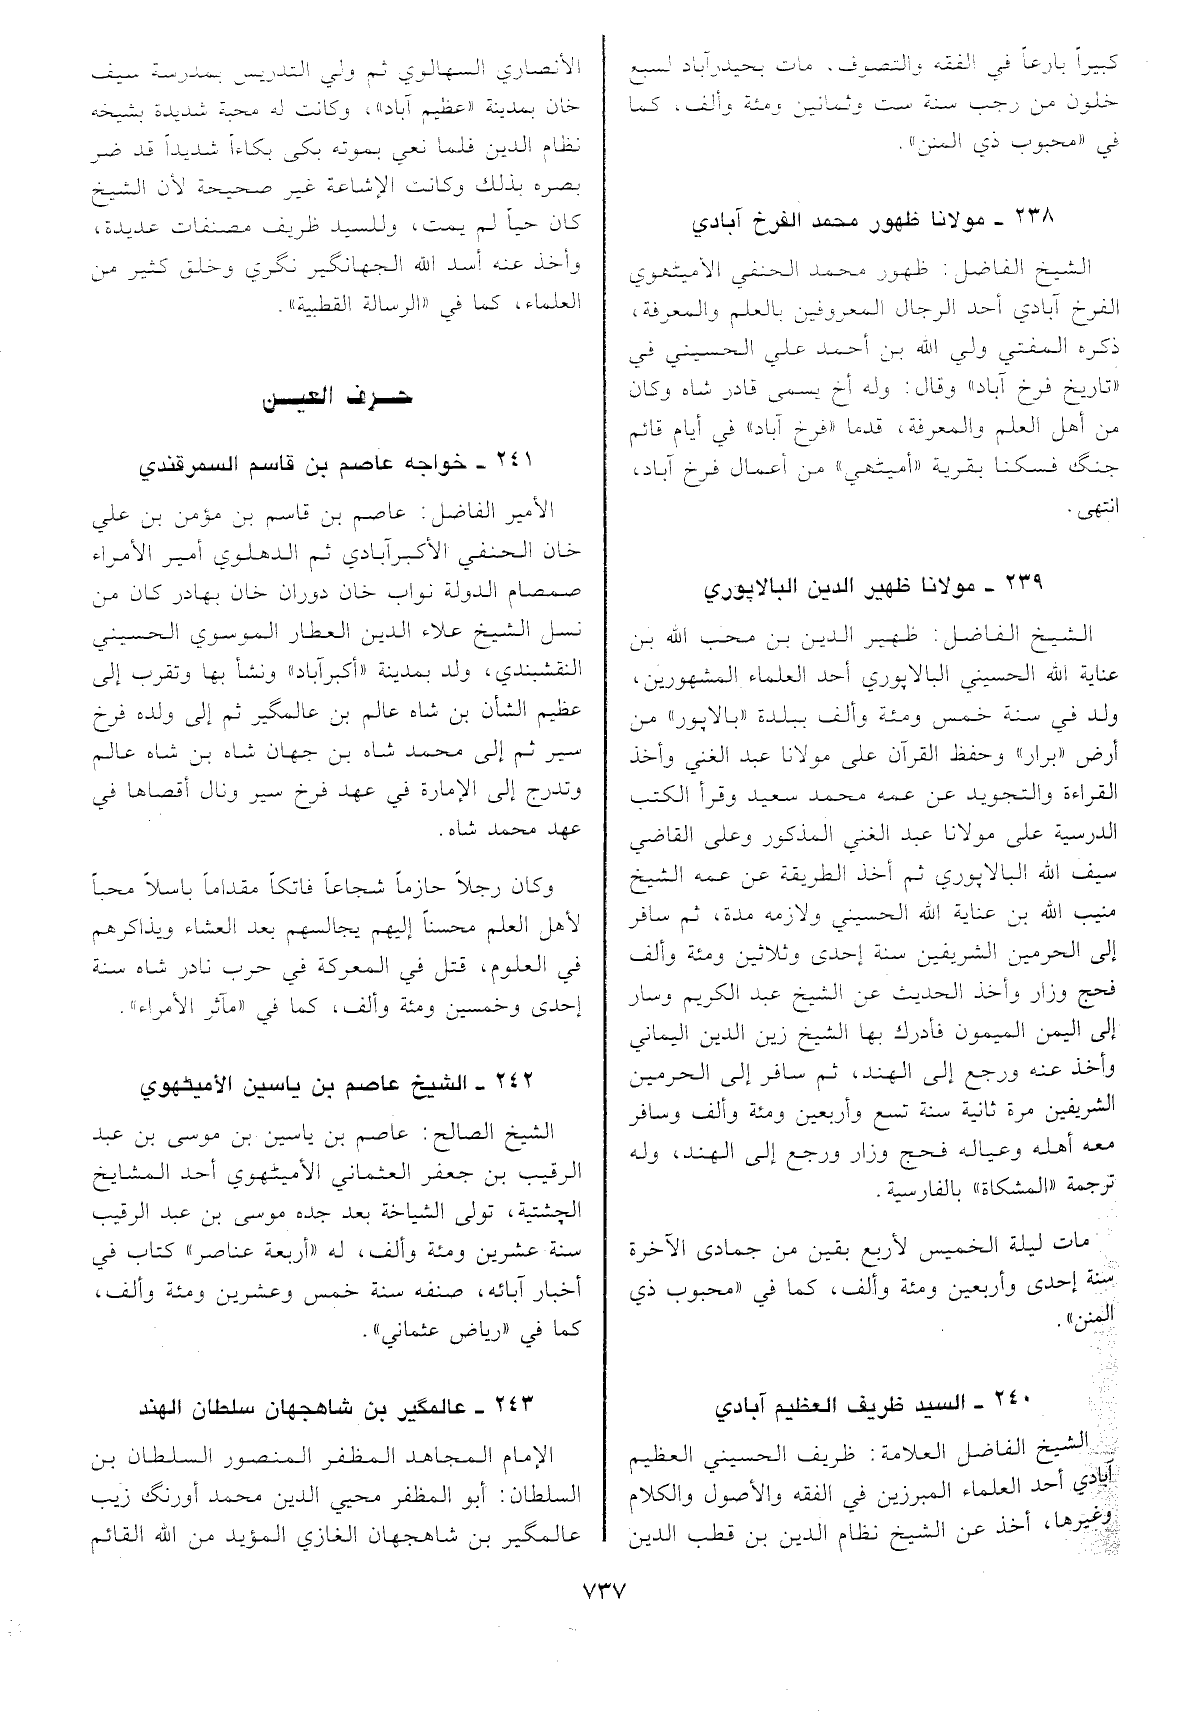 كبيراً بارعاً في الفقه والتصوف، مات بحيدرآباد لسبع
خلون من رجب سنة ست وثمانين ومئة وألف، كما
في «محبوب ذي المنن».
٢٣٨ ـ مولانا ظهور محمد الفرخ آبادي
الشيخ الفاضل: ظهور محمد الحنفي الأميٹهوي
الفرخ آبادي أحد الرجال المعروفين بالعلم والمعرفة،
ذكره المفتي ولي الله بن أحمد علي الحسيني في
«تاريخ فرخ آباد» وقال: وله أخ يسمى قادر شاه وكان
من أهل العلم والمعرفة، قدما «فرخ آباد» في أيام قائم
جنگ فسكنا بقرية «أميٹهي» من أعمال فرخ آباد،
انتهى.
٢٣٩ ـ مولانا ظهير الدين البالاپوري
الشيخ الفاضل: ظهير الدين بن محب الله بن
عناية الله الحسيني البالاپوري أحد العلماء المشهورين،
ولد في سنة خمس ومئة وألف ببلدة «بالاپور» من
أرض «برار» وحفظ القرآن على مولانا عبد الغني وأخذ
القراءة والتجويد عن عمه محمد سعيد وقرأ الكتب
الدرسية على مولانا عبد الغني المذكور وعلى القاضي
سيف الله البالاپوري ثم أخذ الطريقة عن عمه الشيخ
منيب الله بن عناية الله الحسيني ولازمه مدة، ثم سافر
إلى الحرمين الشريفين سنة إحدى وثلاثين ومئة وألف
فحج وزار وأخذ الحديث عن الشيخ عبد الكريم وسار
إلى اليمن الميمون فأدرك بها الشيخ زين الدين اليماني
وأخذ عنه ورجع إلى الهند، ثم سافر إلى الحرمين
الشريفين مرة ثانية سنة تسع وأربعين ومئة وألف وسافر
معه أهله وعياله فحج وزار ورجع إلى الهند، وله
ترجمة «المشكاة» بالفارسية.
مات ليلة الخميس لأربع بقين من جمادى الآخرة
سنة إحدى وأربعين ومئة وألف، كما في «محبوب ذي
المنن».
٢٤٠ ـ السيد ظريف العظيم آبادي
الشيخ الفاضل العلامة: ظريف الحسيني العظيم
آبادي أحد العلماء المبرزين في الفقه والأصول والكلام
وغيرها، أخذ عن الشيخ نظام الدين بن قطب الدين
الأنصاري السهالوي ثم ولي التدريس بمدرسة سيف
خان بمدينة «عظيم آباد»، وكانت له محبة شديدة بشيخه
نظام الدين فلما نعي بموته بكى بكاءاً شديداً قد ضر
بصره بذلك وكانت الإشاعة غير صحيحة لأن الشيخ
كان حياً لم يمت، وللسيد ظريف مصنفات عديدة،
وأخذ عنه أسد الله الجهانگير نگري وخلق كثير من
العلماء، كما في «الرسالة القطبية».
حرف العين
٢٤١ ـ خواجه عاصم بن قاسم السمرقندي
الأمير الفاضل: عاصم بن قاسم بن مؤمن بن علي
خان الحنفي الأكبرآبادي ثم الدهلوي أمير الأمراء
صمصام الدولة نواب خان دوران خان بهادر كان من
نسل الشيخ علاء الدين العطار الموسوي الحسيني
النقشبندي، ولد بمدينة «أكبرآباد» ونشأ بها وتقرب إلى
عظيم الشأن بن شاه عالم بن عالمگير ثم إلى ولده فرخ
سير ثم إلى محمد شاه بن جهان شاه بن شاه عالم
وتدرج إلى الإمارة في عهد فرخ سير ونال أقصاها في
عهد محمد شاه.
وكان رجلاً حازماً شجاعاً فاتكاً مقداماً باسلاً محباً
لأهل العلم محسناً إليهم يجالسهم بعد العشاء ويذاكرهم
في العلوم، قتل في المعركة في حرب نادر شاه سنة
إحدى وخمسين ومئة وألف، كما في «مآثر الأمراء».
٢٤٢ ـ الشيخ عاصم بن ياسين الأميٹهوي
الشيخ الصالح: عاصم بن ياسين بن موسى بن عبد
الرقيب بن جعفر العثماني الأميٹهوي أحد المشايخ
الچشتية، تولى الشياخة بعد جده موسى بن عبد الرقيب
سنة عشرين ومئة وألف، له «أربعة عناصر» كتاب في
أخبار آبائه، صنفه سنة خمس وعشرين ومئة وألف،
كما في «رياض عثماني».
٢٤٣ ـ عالمگير بن شاهجهان سلطان الهند
الإمام المجاهد المظفر المنصور السلطان بن
السلطان: أبو المظفر محيي الدين محمد أورنگ زيب
عالمگير بن شاهجهان الغازي المؤيد من الله القائم
٧٣٧